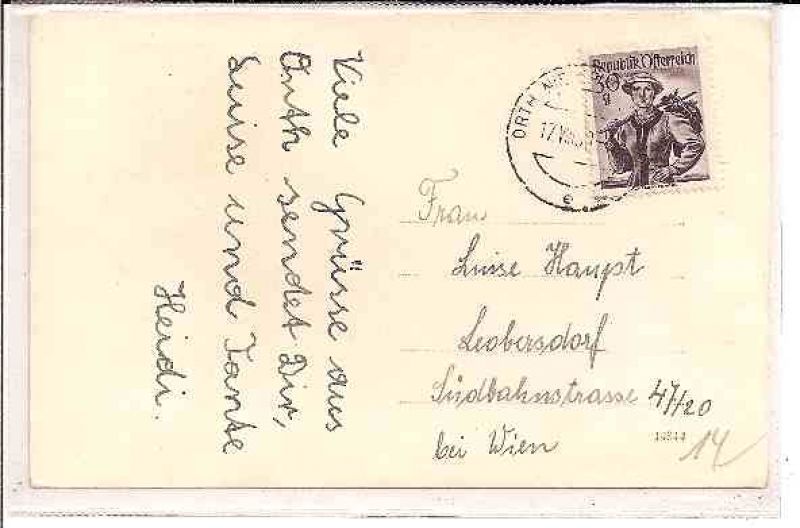 Viele Grüsse aus
Orth sendet Dir,
Luise und Tante
Heidi.
Republik Österreich
30
g
ORTH
17.VII.5
e
Frau
Luise Haupt
Leobersdorf
Südbahnstrasse 47/20
bei Wien
14